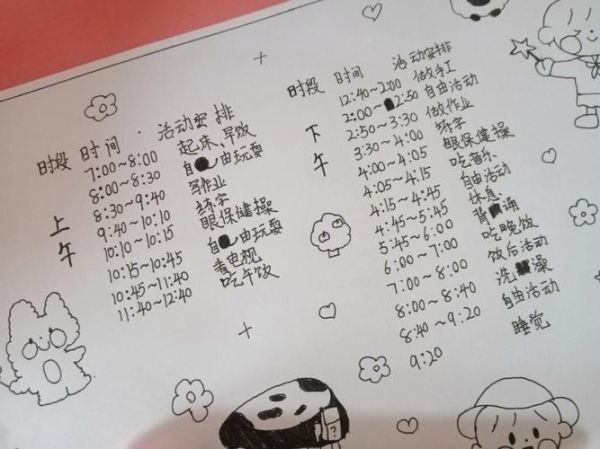 时段 时间 活动安排
上午
7:00~8:00 起床、早饭
8:00~8:30 自由玩耍
8:30~9:40 写作业
9:40~10:10 练字
10:10~10:15 眼保健操
10:15~10:45 自由玩耍
10:45~11:40 看电视
11:40~12:40 吃午饭
时段 时间 活动安排
下午
12:40~2:00 做手工
2:00~2:50 自由活动
2:50~3:30 做作业
3:30~4:00 练字
4:00~4:05 眼保健操
4:05~4:15 音乐
4:15~4:45 自由活动
4:45~5:45 休息
5:45~6:00 背诵
6:00~7:00 吃晚饭
7:00~8:00 饭后活动
8:00~8:40 洗澡
8:40~9:20 自由活动
9:20 睡觉